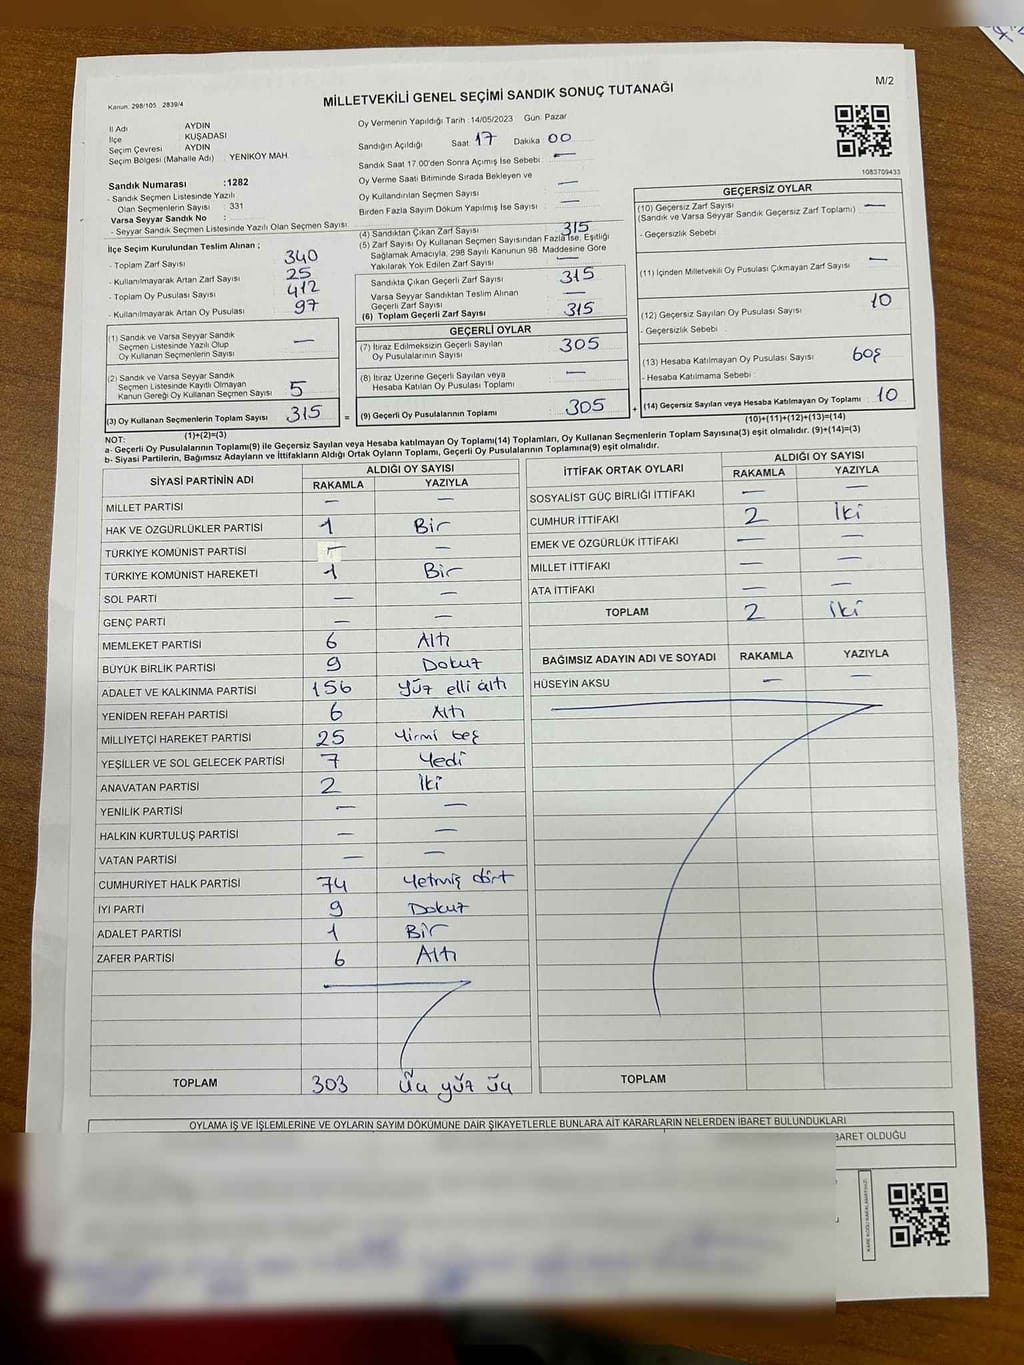 M/2
Kanun. 298/105 2839/4
MİLLETVEKİLİ GENEL SEÇİMİ SANDIK SONUÇ TUTANAĞI
İl Adı AYDIN
İlçe KUŞADASI
Seçim Çevresi AYDIN
Seçim Bölgesi (Mahalle Adı) YENİKÖY MAH
Sandık Numarası :1282
- Sandık Seçmen Listesinde Yazılı
Olan Seçmenlerin Sayısı : 331
Varsa Seyyar Sandık No :
- Seyyar Sandık Seçmen Listesinde Yazılı Olan Seçmen Sayısı
Oy Vermenin Yapıldığı Tarih :14/05/2023 Gün: Pazar
Sandığın Açıldığı Saat: 17 Dakika: 00
Sandık Saat 17.00'den Sonra Açımış İse Sebebi : —
Oy Verme Saati Bitiminde Sırada Bekleyen ve
Oy Kullandırılan Seçmen Sayısı —
Birden Fazla Sayım Döküm Yapılmış İse Sayısı —
1083709433
İlçe Seçim Kurulundan Teslim Alınan ;
- Toplam Zarf Sayısı 340
- Kullanılmayarak Artan Zarf Sayısı 25
- Toplam Oy Pusulası Sayısı 412
- Kullanılmayarak Artan Oy Pusulası 97
(1) Sandık ve Varsa Seyyar Sandık
Seçmen Listesinde Yazılı Olup
Oy Kullanan Seçmenlerin Sayısı —
(2) Sandık ve Varsa Seyyar Sandık
Seçmen Listesinde Kayıtlı Olmayan
Kanun Gereği Oy Kullanan Seçmen Sayısı 5
(3) Oy Kullanan Seçmenlerin Toplam Sayısı 315 =
(1)+(2)=(3)
(4) Sandıktan Çıkan Zarf Sayısı 315
(5) Zarf Sayısı Oy Kullanan Seçmen Sayısından Fazla İse, Eşitliği
Sağlamak Amacıyla, 298 Sayılı Kanunun 98. Maddesine Göre
Yakılarak Yok Edilen Zarf Sayısı —
Sandıkta Çıkan Geçerli Zarf Sayısı 315
Varsa Seyyar Sandıktan Teslim Alınan
Geçerli Zarf Sayısı —
(6) Toplam Geçerli Zarf Sayısı 315
GEÇERLİ OYLAR
(7) İtiraz Edilmeksizin Geçerli Sayılan
Oy Pusulalarının Sayısı 305
(8) İtiraz Üzerine Geçerli Sayılan veya
Hesaba Katılan Oy Pusulası Toplamı —
(9) Geçerli Oy Pusulalarının Toplamı 305 +
GEÇERSİZ OYLAR
(10) Geçersiz Zarf Sayısı —
(Sandık ve Varsa Seyyar Sandık Geçersiz Zarf Toplamı)
- Geçersizlik Sebebi
(11) İçinden Milletvekili Oy Pusulası Çıkmayan Zarf Sayısı —
(12) Geçersiz Sayılan Oy Pusulası Sayısı 10
- Geçersizlik Sebebi
(13) Hesaba Katılmayan Oy Pusulası Sayısı boş
- Hesaba Katılmama Sebebi
(14) Geçersiz Sayılan veya Hesaba Katılmayan Oy Toplamı 10
(10)+(11)+(12)+(13)=(14)
NOT:
a- Geçerli Oy Pusulalarının Toplamı(9) ile Geçersiz Sayılan veya Hesaba katılmayan Oy Toplamı(14) Toplamları, Oy Kullanan Seçmenlerin Toplam Sayısına(3) eşit olmalıdır. (9)+(14)=(3)
b- Siyasi Partilerin, Bağımsız Adayların ve İttifakların Aldığı Ortak Oyların Toplamı, Geçerli Oy Pusulalarının Toplamına(9) eşit olmalıdır.
SİYASİ PARTİNİN ADI ALDIĞI OY SAYISI
RAKAMLA YAZIYLA
MİLLET PARTİSİ — —
HAK VE ÖZGÜRLÜKLER PARTİSİ 1 Bir
TÜRKİYE KOMÜNİST PARTİSİ — —
TÜRKİYE KOMÜNİST HAREKETİ 1 Bir
SOL PARTİ — —
GENÇ PARTİ — —
MEMLEKET PARTİSİ 6 Altı
BÜYÜK BİRLİK PARTİSİ 9 Dokuz
ADALET VE KALKINMA PARTİSİ 156 Yüz elli altı
YENİDEN REFAH PARTİSİ 6 Altı
MİLLİYETÇİ HAREKET PARTİSİ 25 Yirmi beş
YEŞİLLER VE SOL GELECEK PARTİSİ 7 Yedi
ANAVATAN PARTİSİ 2 İki
YENİLİK PARTİSİ — —
HALKIN KURTULUŞ PARTİSİ — —
VATAN PARTİSİ — —
CUMHURİYET HALK PARTİSİ 74 Yetmiş dört
İYİ PARTİ 9 Dokuz
ADALET PARTİSİ 1 Bir
ZAFER PARTİSİ 6 Altı
TOPLAM 303 Üç yüz üç
İTTİFAK ORTAK OYLARI ALDIĞI OY SAYISI
RAKAMLA YAZIYLA
SOSYALİST GÜÇ BİRLİĞİ İTTİFAKI — —
CUMHUR İTTİFAKI 2 İki
EMEK VE ÖZGÜRLÜK İTTİFAKI — —
MİLLET İTTİFAKI — —
ATA İTTİFAKI — —
TOPLAM 2 İki
BAĞIMSIZ ADAYIN ADI VE SOYADI RAKAMLA YAZIYLA
HÜSEYİN AKSU — —
TOPLAM
OYLAMA İŞ VE İŞLEMLERİNE VE OYLARIN SAYIM DÖKÜMÜNE DAİR ŞİKAYETLERLE BUNLARA AİT KARARLARIN NELERDEN İBARET BULUNDUKLARI
BARET OLDUĞU